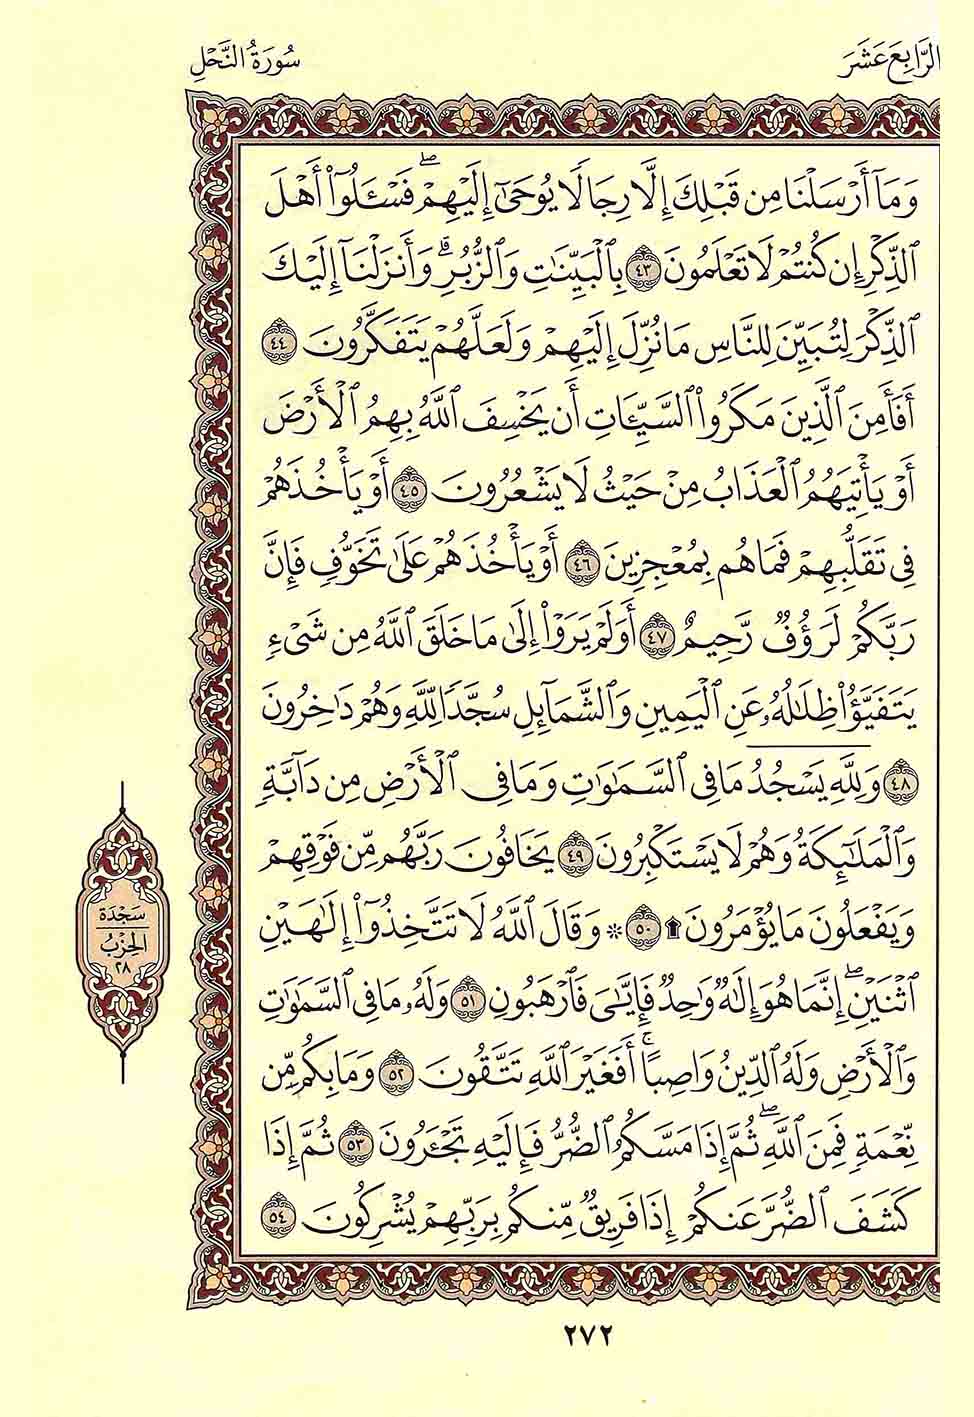 الرَّابِعَ عَشَرَ
سُورَةُ النَّحْلِ
وَمَآ أَرْسَلْنَا مِن قَبْلِكَ إِلَّا رِجَالًا يُوحَىٰٓ إِلَيْهِمْ ۖ فَسْـَٔلُوٓا۟ أَهْلَ
ٱلذِّكْرِ إِن كُنتُمْ لَا تَعْلَمُونَ ٤٣ بِٱلْبَيِّنَـٰتِ وَٱلزُّبُرِ ۗ وَأَنزَلْنَآ إِلَيْكَ
ٱلذِّكْرَ لِتُبَيِّنَ لِلنَّاسِ مَا نُزِّلَ إِلَيْهِمْ وَلَعَلَّهُمْ يَتَفَكَّرُونَ ٤٤
أَفَأَمِنَ ٱلَّذِينَ مَكَرُوا۟ ٱلسَّيِّـَٔاتِ أَن يَخْسِفَ ٱللَّهُ بِهِمُ ٱلْأَرْضَ
أَوْ يَأْتِيَهُمُ ٱلْعَذَابُ مِنْ حَيْثُ لَا يَشْعُرُونَ ٤٥ أَوْ يَأْخُذَهُمْ
فِى تَقَلُّبِهِمْ فَمَا هُم بِمُعْجِزِينَ ٤٦ أَوْ يَأْخُذَهُمْ عَلَىٰ تَخَوُّفٍ فَإِنَّ
رَبَّكُمْ لَرَءُوفٌ رَّحِيمٌ ٤٧ أَوَلَمْ يَرَوْا۟ إِلَىٰ مَا خَلَقَ ٱللَّهُ مِن شَىْءٍ
يَتَفَيَّؤُا۟ ظِلَـٰلُهُۥ عَنِ ٱلْيَمِينِ وَٱلشَّمَآئِلِ سُجَّدًا لِّلَّهِ وَهُمْ دَٰخِرُونَ
٤٨ وَلِلَّهِ يَسْجُدُ مَا فِى ٱلسَّمَـٰوَٰتِ وَمَا فِى ٱلْأَرْضِ مِن دَآبَّةٍ
وَٱلْمَلَـٰٓئِكَةُ وَهُمْ لَا يَسْتَكْبِرُونَ ٤٩ يَخَافُونَ رَبَّهُم مِّن فَوْقِهِمْ
وَيَفْعَلُونَ مَا يُؤْمَرُونَ ۩ ٥٠ * وَقَالَ ٱللَّهُ لَا تَتَّخِذُوٓا۟ إِلَـٰهَيْنِ
ٱثْنَيْنِ ۖ إِنَّمَا هُوَ إِلَـٰهٌ وَٰحِدٌ فَإِيَّـٰىَ فَٱرْهَبُونِ ٥١ وَلَهُۥ مَا فِى ٱلسَّمَـٰوَٰتِ
وَٱلْأَرْضِ وَلَهُ ٱلدِّينُ وَاصِبًا ۚ أَفَغَيْرَ ٱللَّهِ تَتَّقُونَ ٥٢ وَمَا بِكُم مِّن
نِّعْمَةٍ فَمِنَ ٱللَّهِ ۖ ثُمَّ إِذَا مَسَّكُمُ ٱلضُّرُّ فَإِلَيْهِ تَجْـَٔرُونَ ٥٣ ثُمَّ إِذَا
كَشَفَ ٱلضُّرَّ عَنكُمْ إِذَا فَرِيقٌ مِّنكُم بِرَبِّهِمْ يُشْرِكُونَ ٥٤
سَجْدَة
الحِزْبُ
٢٨
٢٧٢